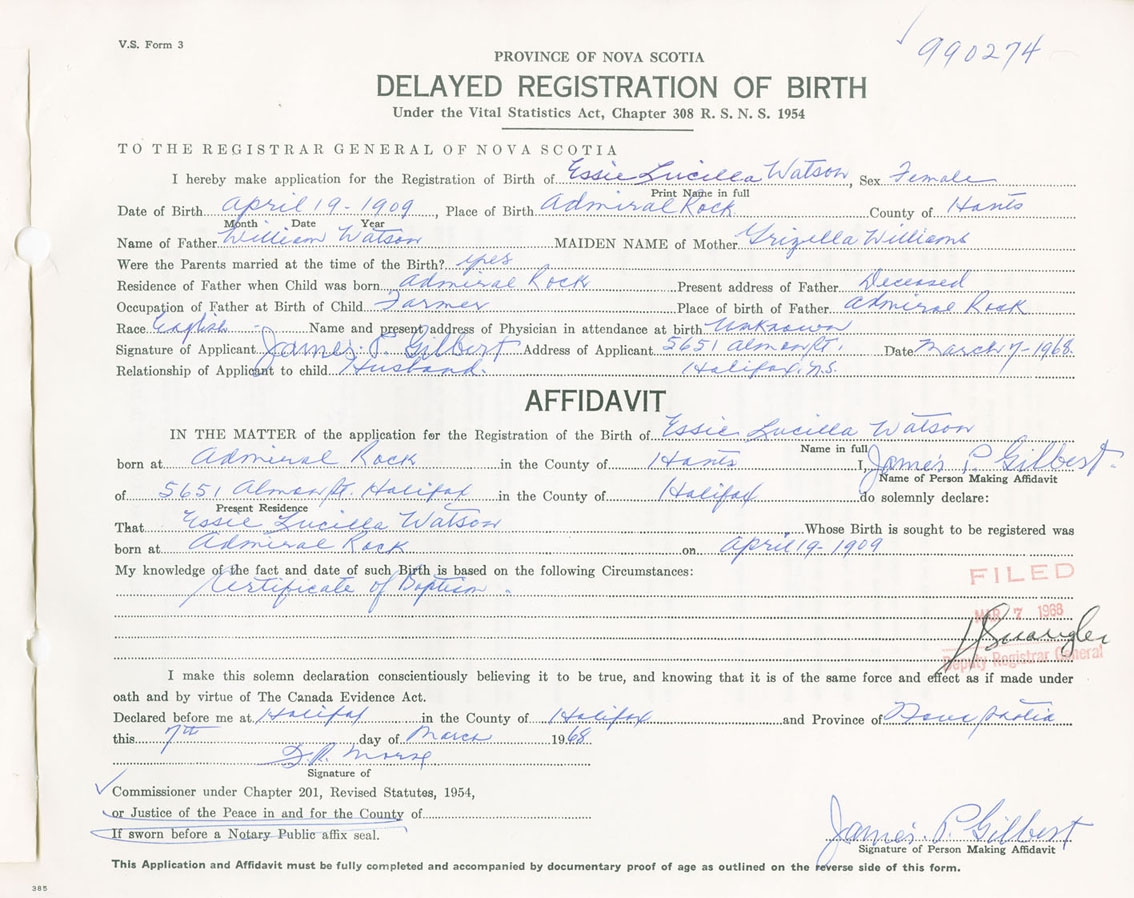 V.S. Form 3
990274
PROVINCE OF NOVA SCOTIA
DELAYED REGISTRATION OF BIRTH
Under the Vital Statistics Act, Chapter 308 R. S. N. S. 1954
TO THE REGISTRAR GENERAL OF NOVA SCOTIA
I hereby make application for the Registration of Birth of Essie Lucilla Watson, Sex Female
Print Name in full
Date of Birth April 19-1909, Place of Birth Admiral Rock County of Hants
Month Date Year
Name of Father William Watson MAIDEN NAME of Mother Grizella Williams
Were the Parents married at the time of the Birth? yes
Residence of Father when Child was born Admiral Rock Present address of Father Deceased
Occupation of Father at Birth of Child Farmer Place of birth of Father Admiral Rock
Race English Name and present address of Physician in attendance at birth Unknown
Signature of Applicant James P. Gilbert Address of Applicant 5651 Almon St. Date March 7-1968.
Relationship of Applicant to child Husband. Halifax. N.S.
AFFIDAVIT
IN THE MATTER of the application for the Registration of the Birth of Essie Lucilla Watson
Name in full
born at Admiral Rock in the County of Hants I, James P. Gilbert.
Name of Person Making Affidavit
of 5651 Almon St. Halifax in the County of Halifax do solemnly declare:
Present Residence
That Essie Lucilla Watson Whose Birth is sought to be registered was
born at Admiral Rock on April 19-1909
My knowledge of the fact and date of such Birth is based on the following Circumstances:
Certificate of Baptism.
FILED
MAR 7 1968
Deputy Registrar General
I make this solemn declaration conscientiously believing it to be true, and knowing that it is of the same force and effect as if made under
oath and by virtue of The Canada Evidence Act.
Declared before me at Halifax in the County of Halifax and Province of Nova Scotia
this 7th day of March 1968
D.R. Morse
Signature of
Commissioner under Chapter 201, Revised Statutes, 1954,
or Justice of the Peace in and for the County of
If sworn before a Notary Public affix seal.
James P. Gilbert
Signature of Person Making Affidavit
This Application and Affidavit must be fully completed and accompanied by documentary proof of age as outlined on the reverse side of this form.
385